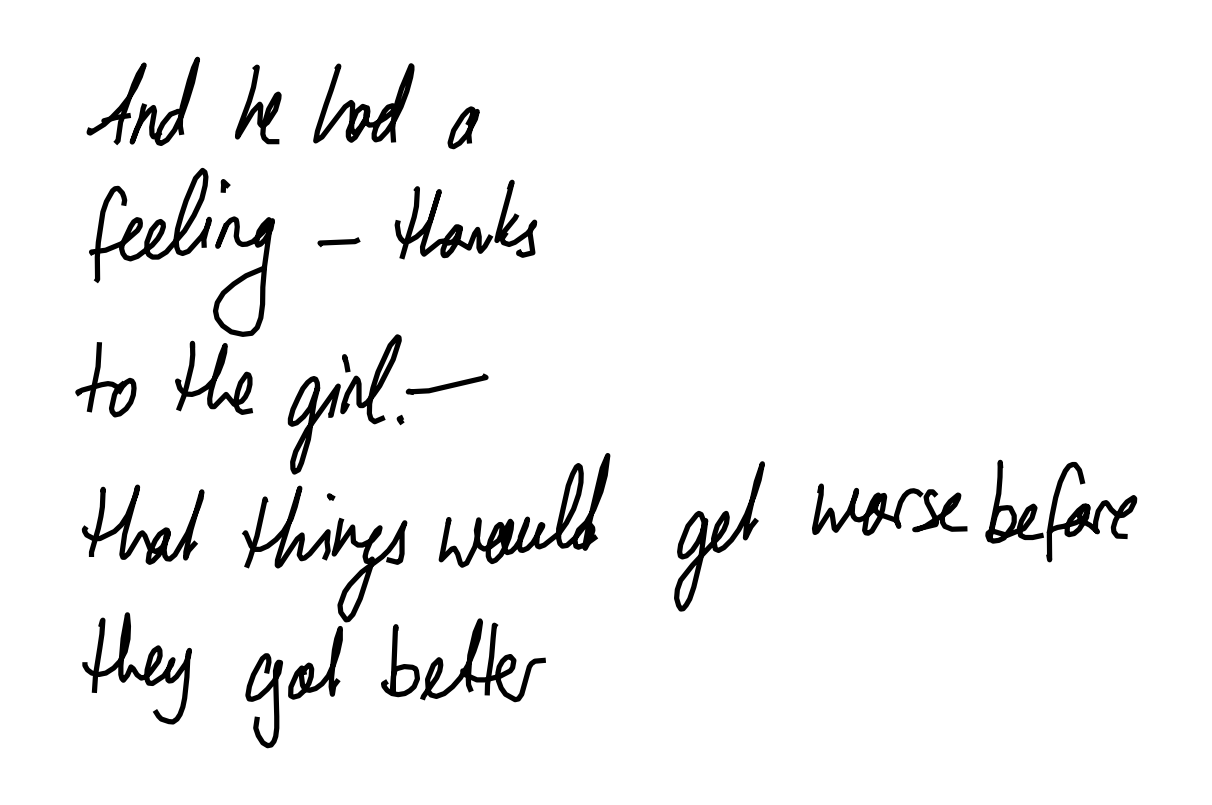 And he had a
feeling - thanks
to the girl. -
that things would get worse before
they got better